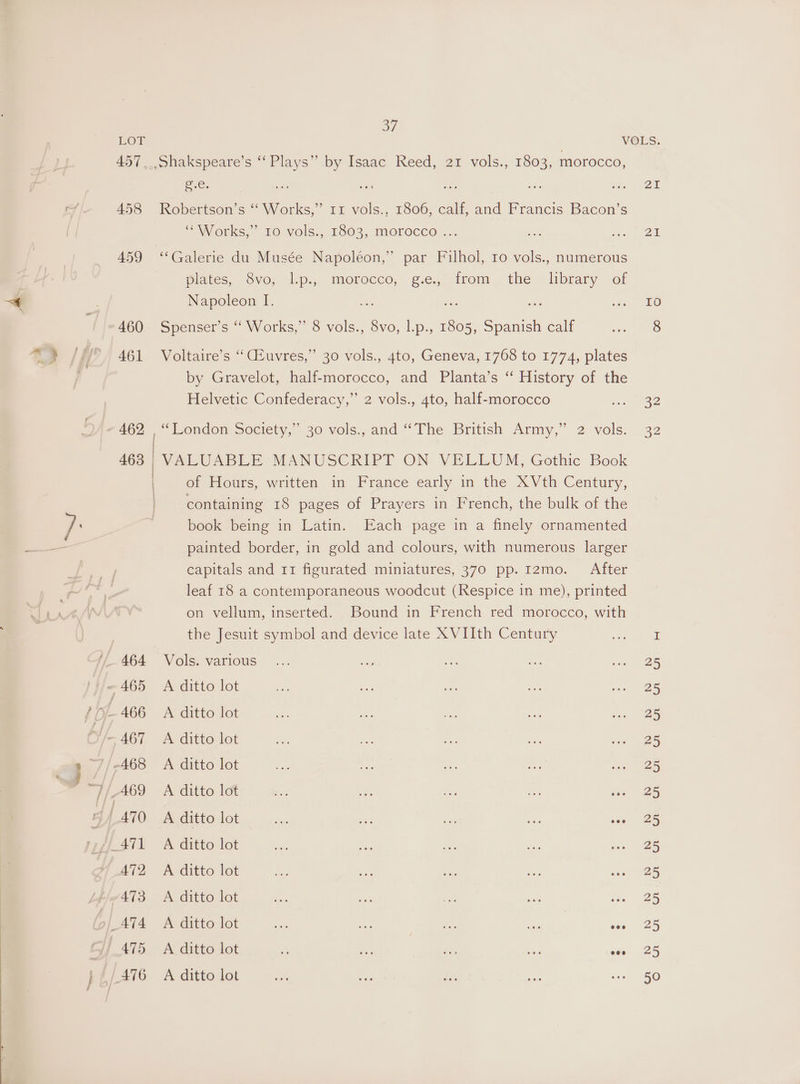 37
LOT VOLS.
457 Shakspeare's “Plays” by Isaac Reed, 21 vols., 1803, morocco,
g.e. ... ... ... ... ... 21
458 Robertson's “Works,” 11 vols., 1806, calf, and Francis Bacon's
“Works,” 10 vols., 1803, morocco ... ... ... 21
459 “Galerie du Musée Napoléon,” par Filhol, 10 vols., numerous
plates, 8vo, l.p., morocco, g.e., from the library of
Napoleon I. ... ... ... ... 10
460 Spenser's “Works,” 8 vols., 8vo, l.p., 1805, Spanish calf ... 8
461 Voltaire's “Œuvres,” 30 vols., 4to, Geneva, 1768 to 1774, plates
by Gravelot, half-morocco, and Planta's “History of the
Helvetic Confederacy,” 2 vols., 4to, half-morocco ... 32
462 “London Society,” 30 vols., and “The British Army,” 2 vols. 32
463 VALUABLE MANUSCRIPT ON VELLUM, Gothic Book
of Hours, written in France early in the XVth Century,
containing 18 pages of Prayers in French, the bulk of the
book being in Latin. Each page in a finely ornamented
painted border, in gold and colours, with numerous larger
capitals and 11 figurated miniatures, 370 pp. 12mo. After
leaf 18 a contemporaneous woodcut (Respice in me), printed
on vellum, inserted. Bound in French red morocco, with
the Jesuit symbol and device late XVIIth Century ... 1
464 Vols. various ... ... ... ... ... 25
465 A ditto lot ... ... ... ... ... 25
466 A ditto lot ... ... ... ... ... 25
467 A ditto lot ... ... ... ... ... 25
468 A ditto lot ... ... ... ... ... 25
469 A ditto lot ... ... ... ... ... 25
470 A ditto lot ... ... ... ... ... 25
471 A ditto lot ... ... ... ... ... 25
472 A ditto lot ... ... ... ... ... 25
473 A ditto lot ... ... ... ... ... 25
474 A ditto lot ... ... ... ... ... 25
475 A ditto lot ... ... ... ... ... 25
476 A ditto lot ... ... ... ... ... 50